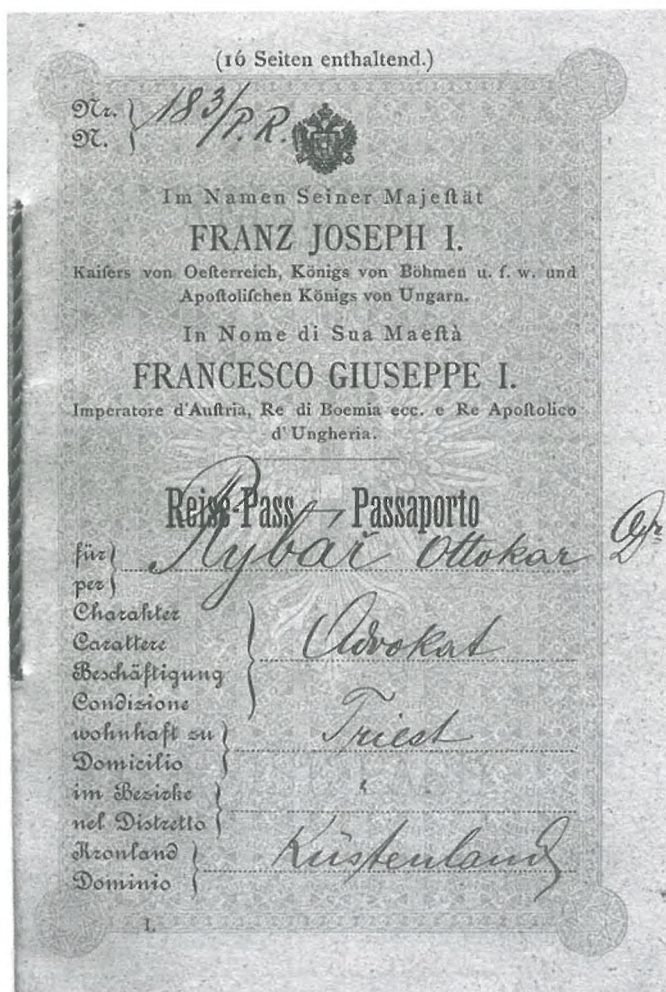 (16 Seiten enthaltend.)
Nr. } 183/P.R.
N.
Im Namen Seiner Majeſtät
FRANZ JOSEPH I.
Kaiſers von Oeſterreich, Königs von Böhmen u. ſ. w. und
Apoſtoliſchen Königs von Ungarn.
In Nome di Sua Maeſtà
FRANCESCO GIUSEPPE I.
Imperatore d'Auſtria, Re di Boemia ecc. e Re Apoſtolico
d'Ungheria.
Reise-Pass Passaporto
für } Rybář Ottokar Dr
per
Charakter
Carattere } Advokat
Beschäftigung
Condizione
wohnhaft zu } Triest
Domicilio
im Bezirke } "
nel Distretto
Kronland } Küstenland
Dominio
I.